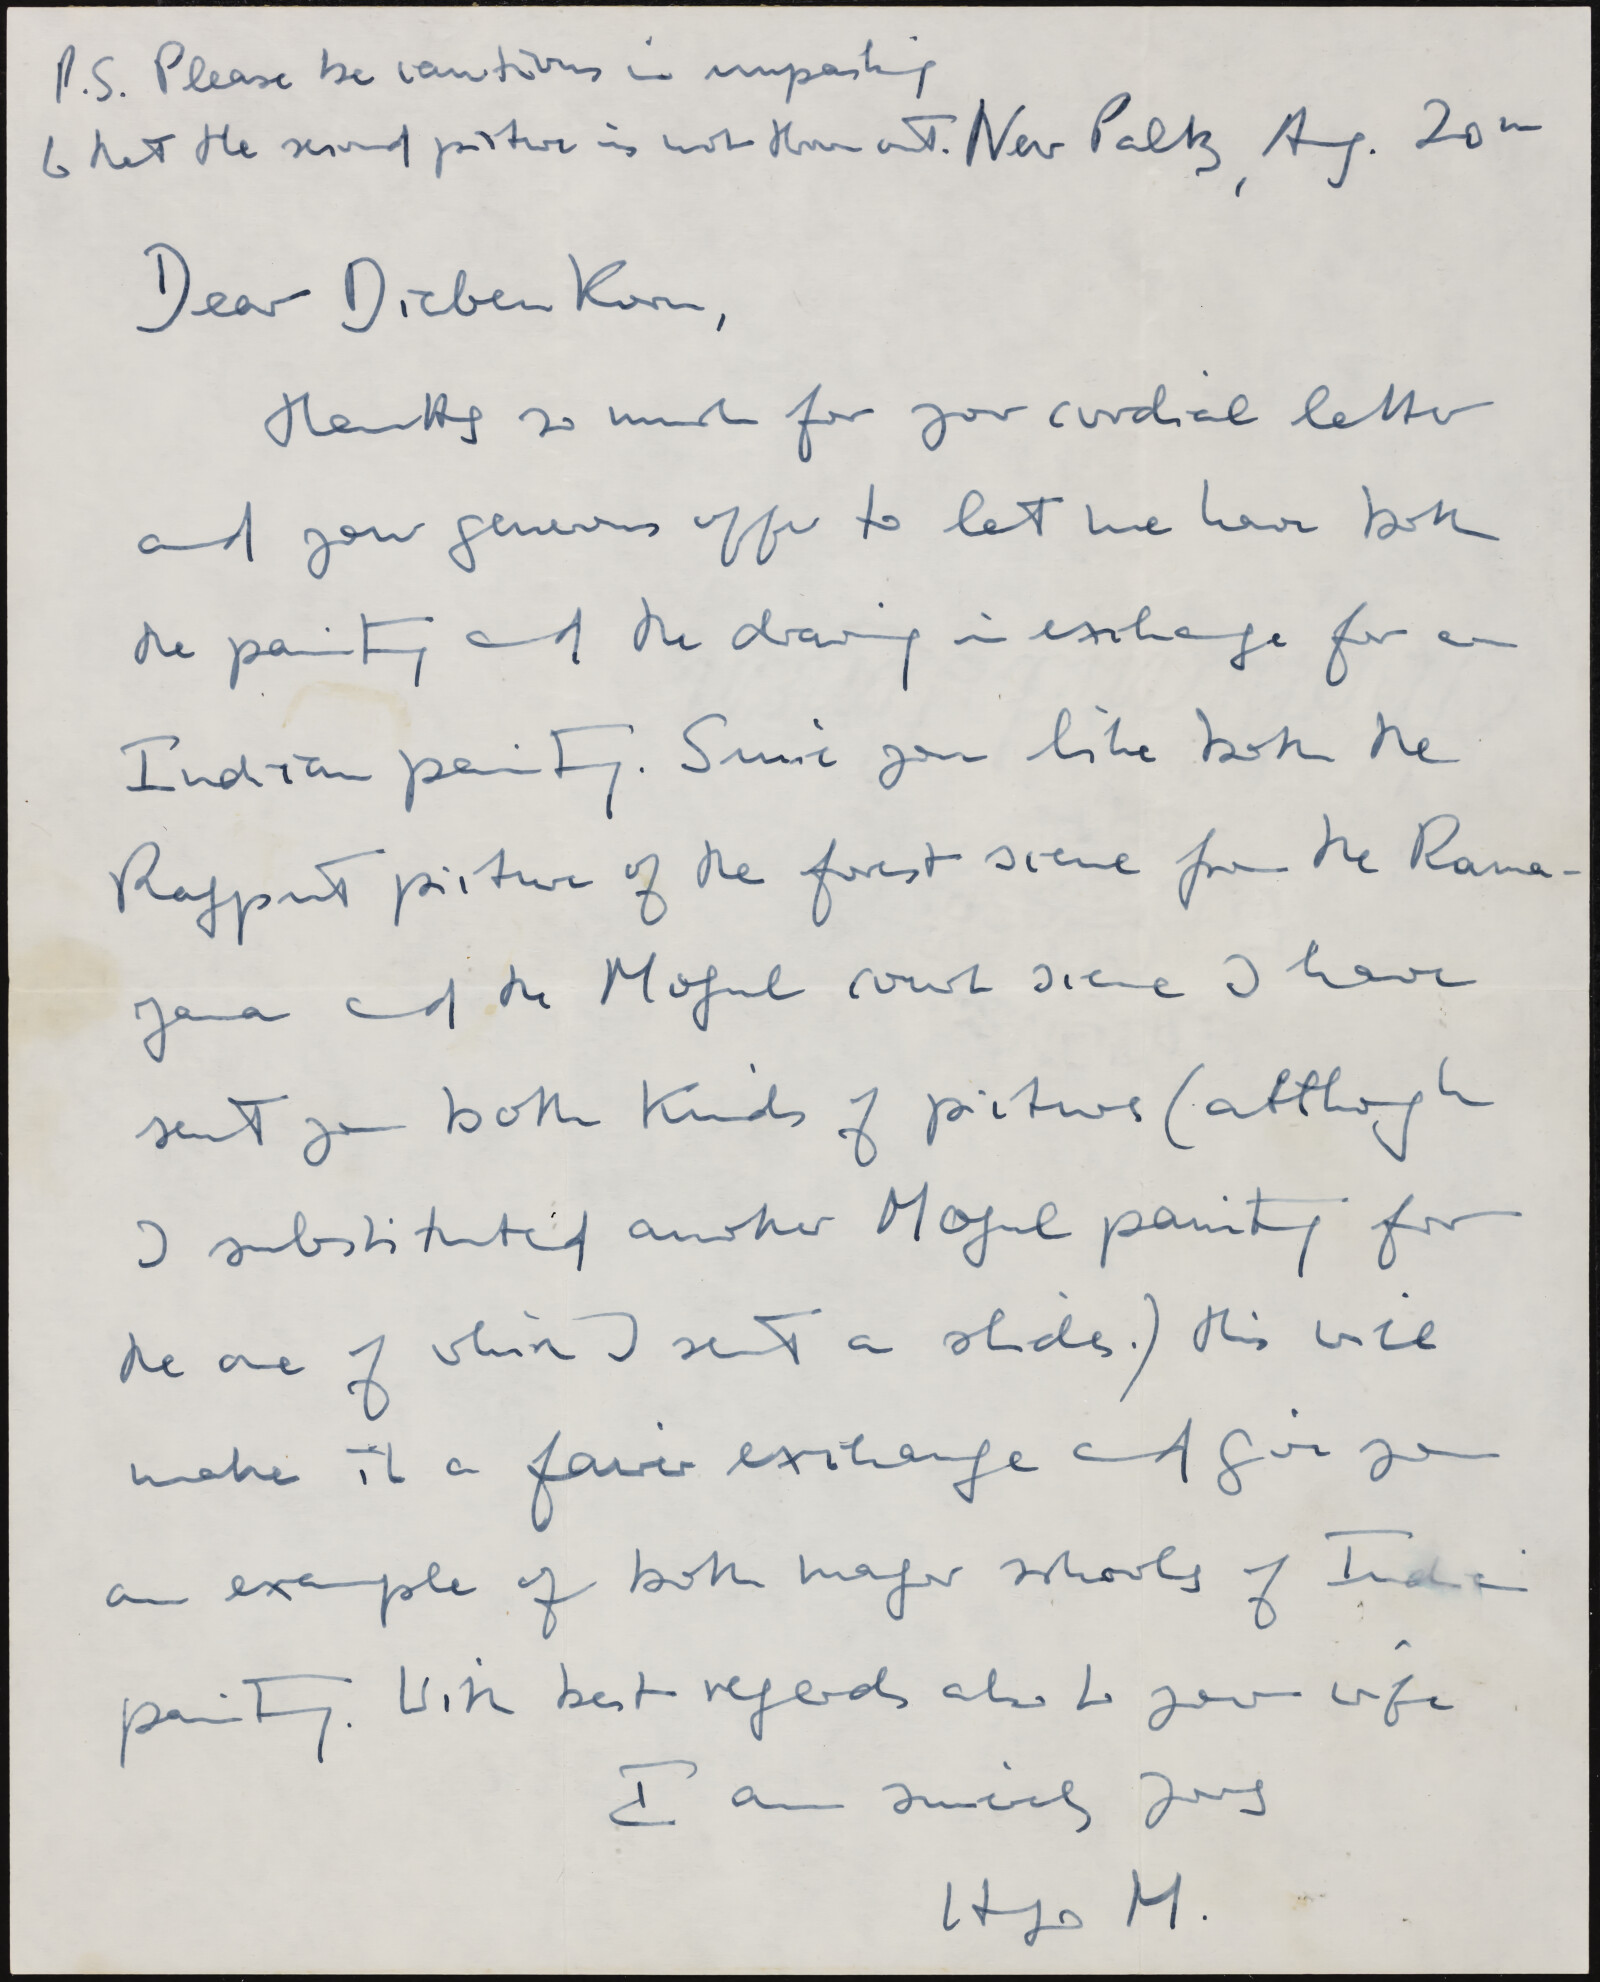 P.S. Please be cautious in unpacking
that the second picture is not thrown out. New Paltz, Aug. 20th
Dear Diebenkorn,
thanks so much for your cordial letter
and your generous offer to let me have both
the painting and the drawing in exchange for an
Indian painting. Since you like both the
Rajput picture of the forest scene from the Rama-
yana and the Mogul court scene I have
sent you both kinds of pictures (although
I substituted another Mogul painting for
the one of which I sent a slide.) this will
make it a fairer exchange and give you
an example of both major schools of Indian
painting. With best regards also to your wife
I am sincerely yours
Hugo M.